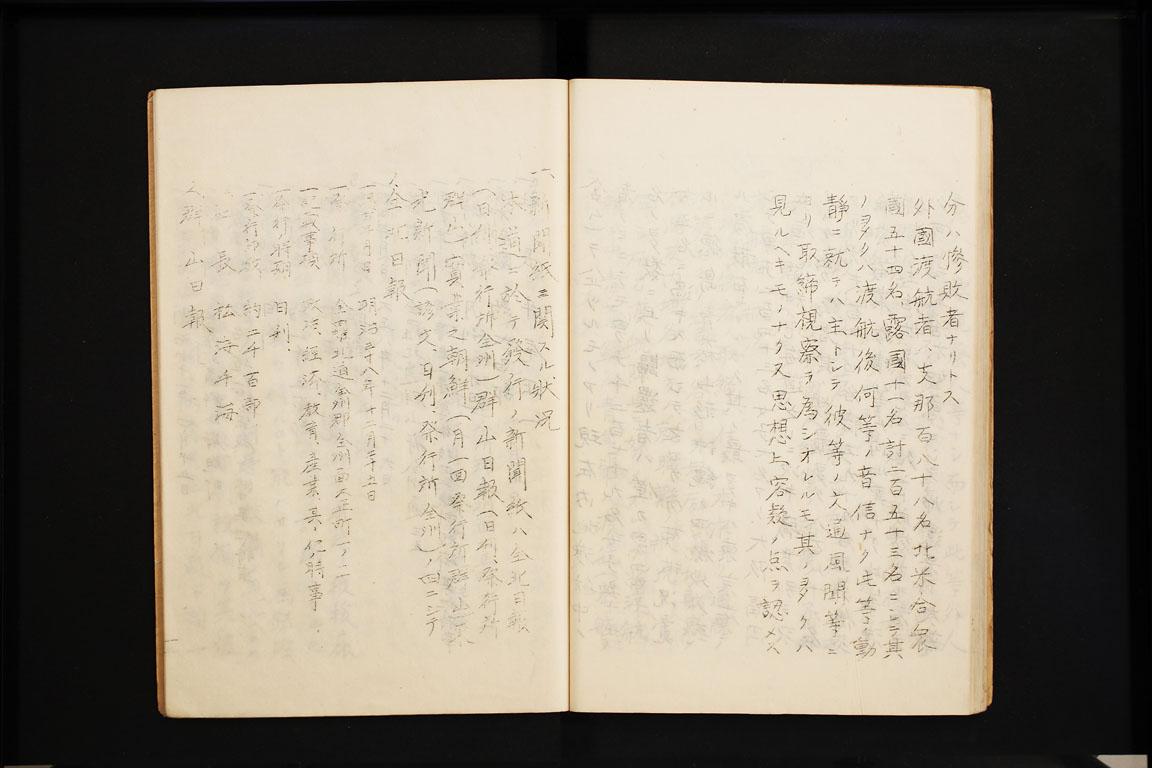 分ハ慘敗者ナリトス
外國渡航者ハ支那百八十八名北米合衆
國五十四名露國十一名計二百五十三名ニシテ其
ノ多クハ渡航後何等ノ音信ナク此等ノ動
靜ニ就テハ主トシテ彼等ノ文通風聞等ニ
ヨリ取締視察ヲ為シオレルモ其ノ多クハ
見ルヘキモノナク又思想上容疑ノ点ヲ認メス
一、新聞紙ニ關スル狀況
本道ニ於テ發行ノ新聞紙ハ全北日報
(日刊、發行所全州)群山日報(日刊、發行所
群山)實業之朝鮮(月一回發行所群山)
光新聞(諺文日刊發行所全州)ノ四ニシテ
全北日報
年月日 明治三十八年十二月二十五日
一發行所 全羅北道全州郡全州面大正町一ノ二
一記載事項 政治、經濟、教育、産業、其ノ他ノ時事
一發行時期 日刊、
一發行部数 約二千百部
社長 松海千海
群山日報